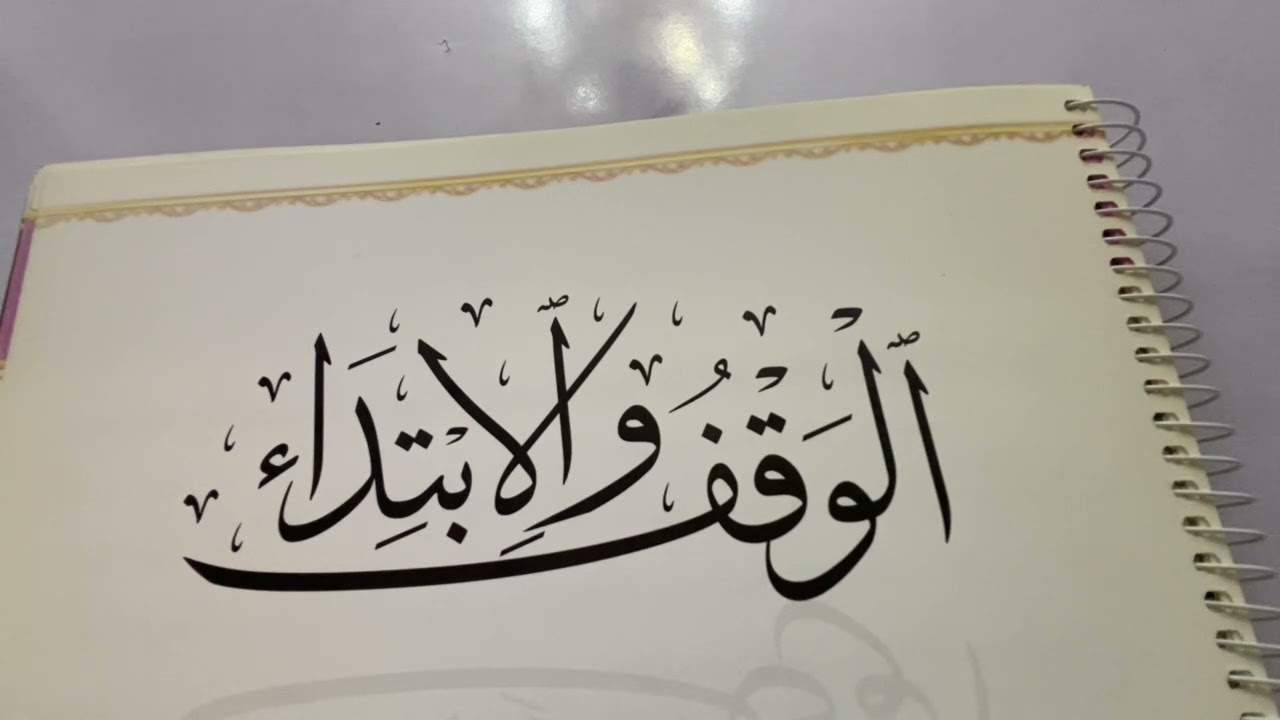 ٱلْوَقْفُ وَٱلِابْتِدَاء